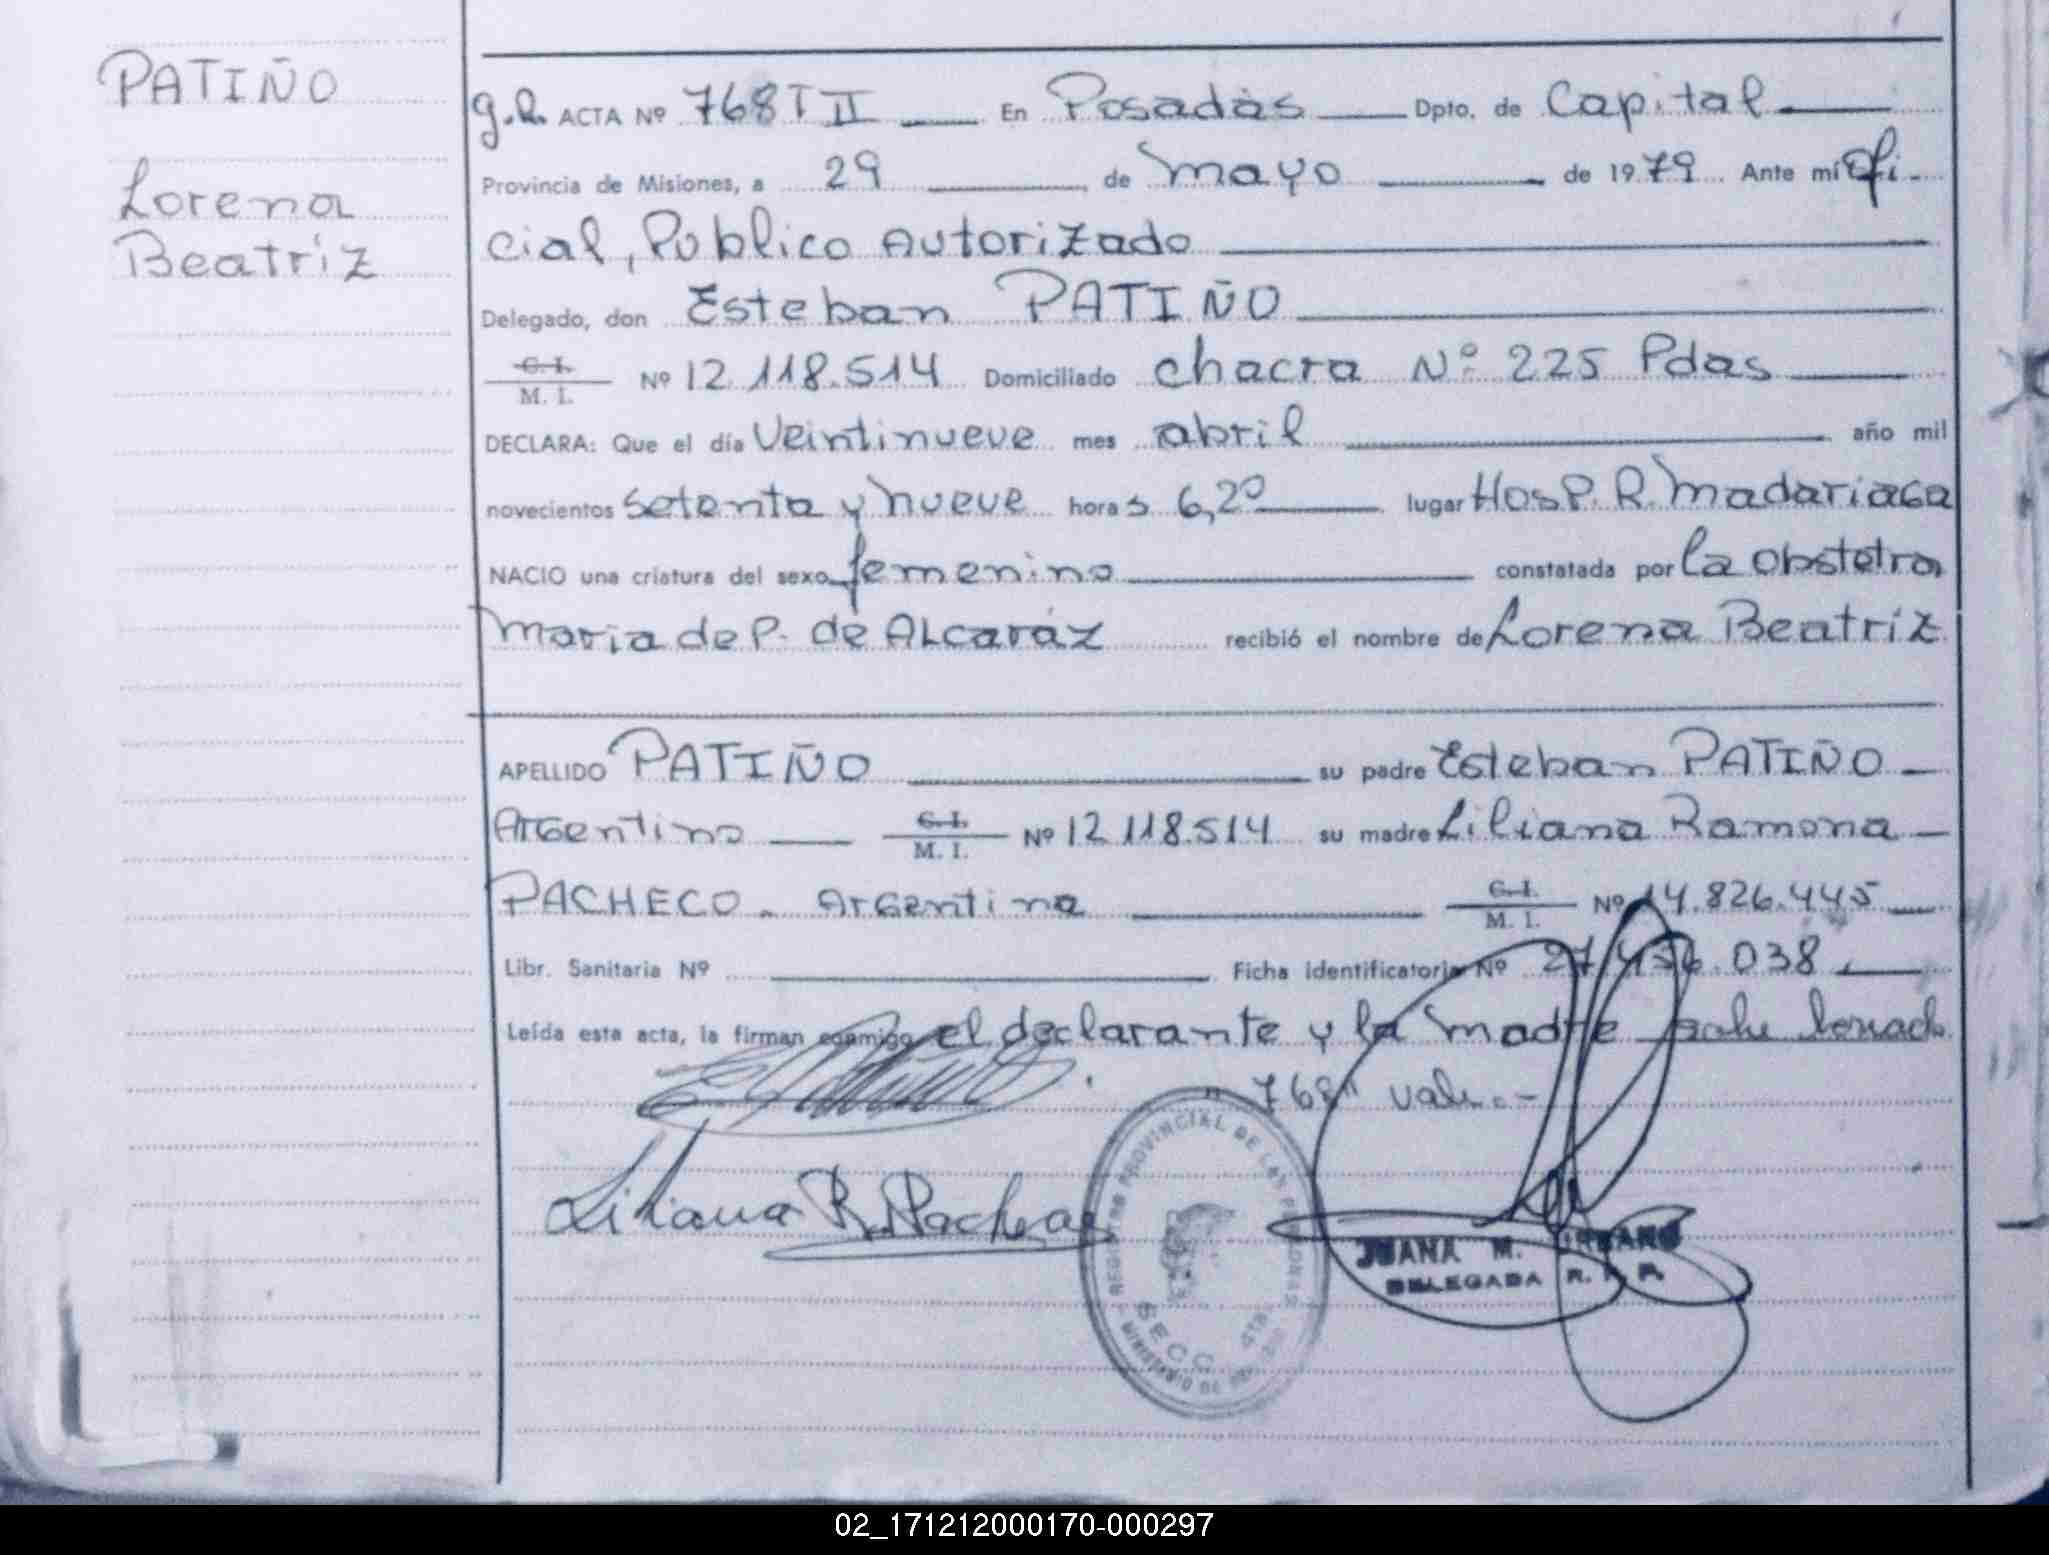 PATIÑO
Lorena
Beatriz
g.R. ACTA Nº 768 T II En Posadas Dpto. de Capital
Provincia de Misiones, a 29 de Mayo de 1979 Ante mí Ofi-
cial, Publico Autorizado
Delegado, don Esteban PATIÑO
C. I.
M. I.
Nº 12.118.514 Domiciliado chacra Nº 225 Pdas
DECLARA: Que el día Veintinueve mes abril año mil
novecientos setenta y nueve horas 6,20 lugar Hosp. R. Madariaga
NACIO una criatura del sexo femenino constatada por la obstetra
Maria de P. de ALcaráz recibió el nombre de Lorena Beatriz
APELLIDO PATIÑO su padre Esteban PATIÑO
Argentino C. I.
M. I.
Nº 12.118.514 su madre Liliana Ramona
PACHECO. Argentina C. I.
M. I.
Nº 14.826.445
Libr. Sanitaria Nº Ficha Identificatoria Nº 27.456.038
Leída esta acta, la firman conmigo el declarante y la madre
"768" vale.-
Liliana R. Pacheco
REGISTRO PROVINCIAL DE LAS PERSONAS
SECC. 4ta
MINISTERIO DE
JUANA M.
DELEGADA R. P. P.
02_171212000170-000297